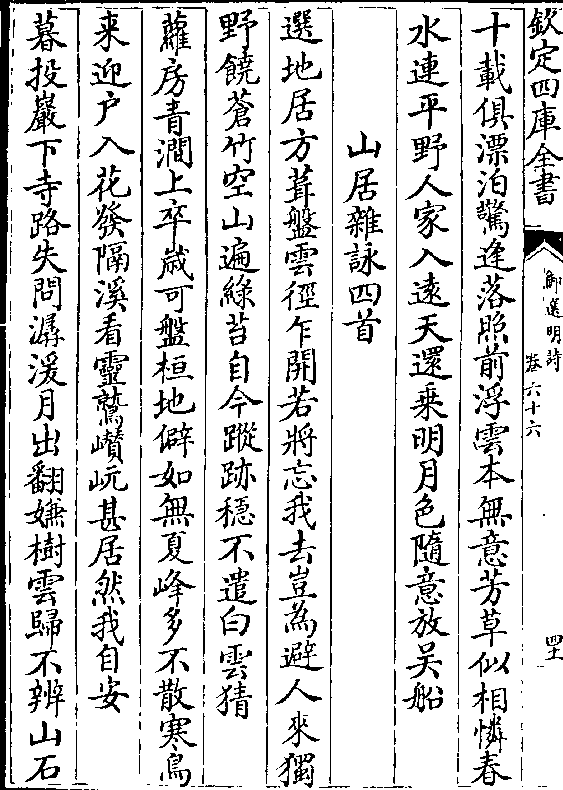 欽定四庫全書
御選明詩
卷六十六
四十
十載俱漂泊驚逢落照前浮雲本無意芳草似相憐春
水連平野人家入遠天還乗明月色隨意放吴船
山居雜詠四首
選地居方葺盤雲徑乍開若將忘我去豈為避人來獨
野饒蒼竹空山遍緑苔自今蹤跡穩不遣白雲猜
蘿房青澗上卒嵗可盤桓地僻如無夏峰多不散寒鳥
来迎户入花發隔溪看靈鷲巑岏甚居然我自安
暮投巖下寺路失問潺湲月出翻嫌樹雲歸不辨山石